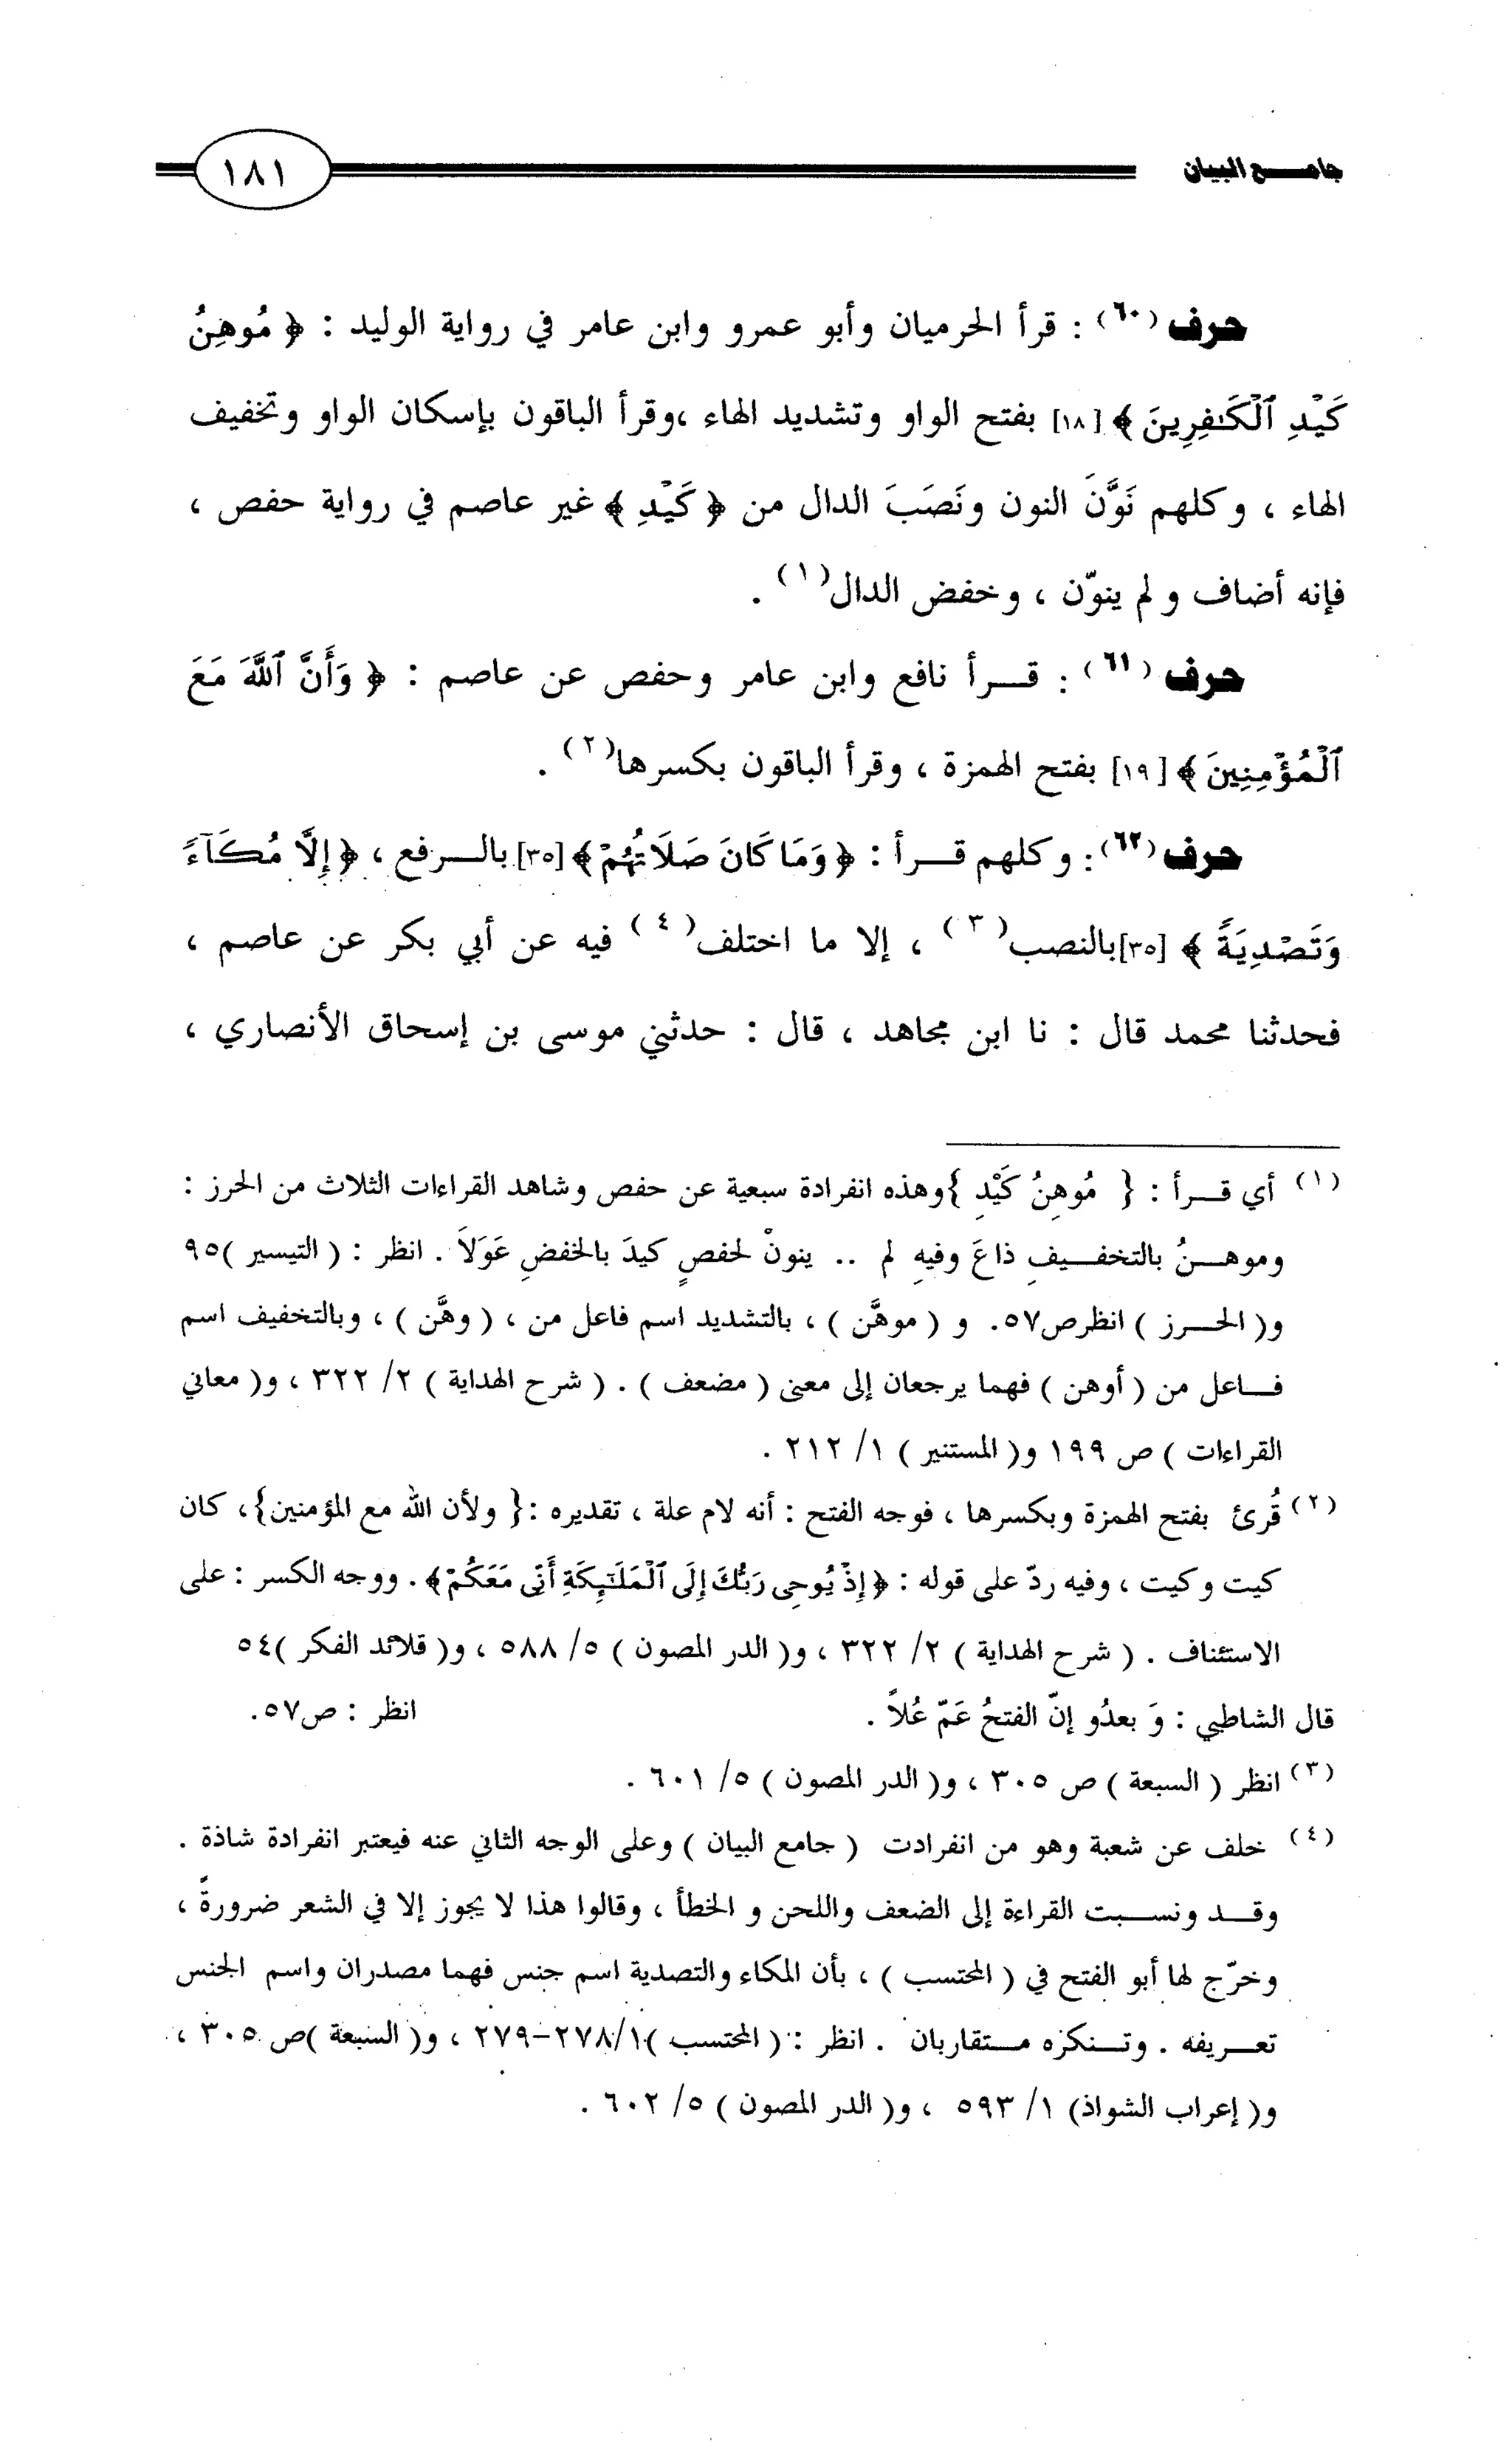 جامع البيان
١٨١
حرف (٦٠) : قرأ الحرميان وأبو عمرو وابن عامر في رواية الوليد : ﴿ مُوهِنُ
كَيْدِ ٱلْكَٰفِرِينَ ﴾ [١٨] بفتح الواو وتشديد الهاء ،وقرأ الباقون بإسكان الواو وتخفيف
الهاء ، وكلهم نَوَّنَ النون ونَصَبَ الدال من ﴿ كَيْدِ ﴾ غير عاصم في رواية حفص ،
فإنه أضاف و لم ينوّن ، وخفض الدال(١) .
حرف (٦١) : قــرأ نافع وابن عامر وحفص عن عاصم : ﴿ وَأَنَّ ٱللَّهَ مَعَ
ٱلْمُؤْمِنِينَ ﴾ [١٩] بفتح الهمزة ، وقرأ الباقون بكسرها(٢) .
حرف (٦٢) : وكلهم قــرأ : ﴿ وَمَا كَانَ صَلَاتُهُمْ ﴾ [٣٥] بالــرفع ، ﴿ إِلَّا مُكَآءً
وَتَصْدِيَةً ﴾ [٣٥]بالنصب(٣) ، إلا ما اختلف(٤) فيه عن أبي بكر عن عاصم ،
فحدثنا محمد قال : نا ابن مجاهد ، قال : حدثني موسى بن إسحاق الأنصاري ،
(١) أي قــرأ : { مُوهِنُ كَيْدِ }وهذه انفرادة سبعية عن حفص وشاهد القراءات الثلاث من الحرز :
وموهــنُ بالتخفــيفِ ذاعَ وفيهِ لم .. ينونْ لحفصٍ كيدَ بالخفضِ عَوَلاَ . انظر : ( التيسير )٩٥
و( الحــرز ) انظرص٥٧. و ( موهَّن ) ، بالتشديد اسم فاعل من ، ( وهَّن ) ، وبالتخفيف اسم
فــاعل من ( أوهن ) فهما يرجعان إلى معنى ( مضعف ) . ( شرح الهداية ) ٢/ ٣٢٢ ، و( معاني
القراءات ) ص ١٩٩ و( المستنير ) ١/ ٢١٢ .
(٢) قُرئ بفتح الهمزة وبكسرها ، فوجه الفتح : أنه لام علة ، تقديره :{ ولأن الله مع المؤمنين}، كان
كيت وكيت ، وفيه ردّ على قوله : ﴿ إِذْ يُوحِى رَبُّكَ إِلَى ٱلْمَلَٰٓئِكَةِ أَنِّى مَعَكُمْ ﴾. ووجه الكسر : على
الاستئناف . ( شرح الهداية ) ٢/ ٣٢٢ ، و( الدر المصون ) ٥/ ٥٨٨ ، و( قلائد الفكر )٥٤
قال الشاطبي : وَ بعدُو إنّ الفتحُ عَمّ عُلاً . انظر : ص٥٧.
(٣) انظر ( السبعة ) ص ٣٠٥ ، و( الدر المصون ) ٥/ ٦٠١ .
(٤) خلف عن شعبة وهو من انفرادت ( جامع البيان ) وعلى الوجه الثاني عنه فيعتبر انفرادة شاذة .
وقــد ونســبت القراءة إلى الضعف واللحن و الخطأ ، وقالوا هذا لا يجوز إلا في الشعر ضرورةً ،
وخرّج لها أبو الفتح في ( المحتسب ) ، بأن المكاء والتصدية اسم جنس فهما مصدران واسم الجنس
تعــريفه . وتــنكزه مــتقاربان . انظر : ( المحتسب )١/٢٧٨-٢٧٩ ، و( السبعة )ص ٣٠٥ ،
و( إعراب الشواذ) ١/ ٥٩٣ ، و( الدر المصون ) ٥/ ٦٠٢ .